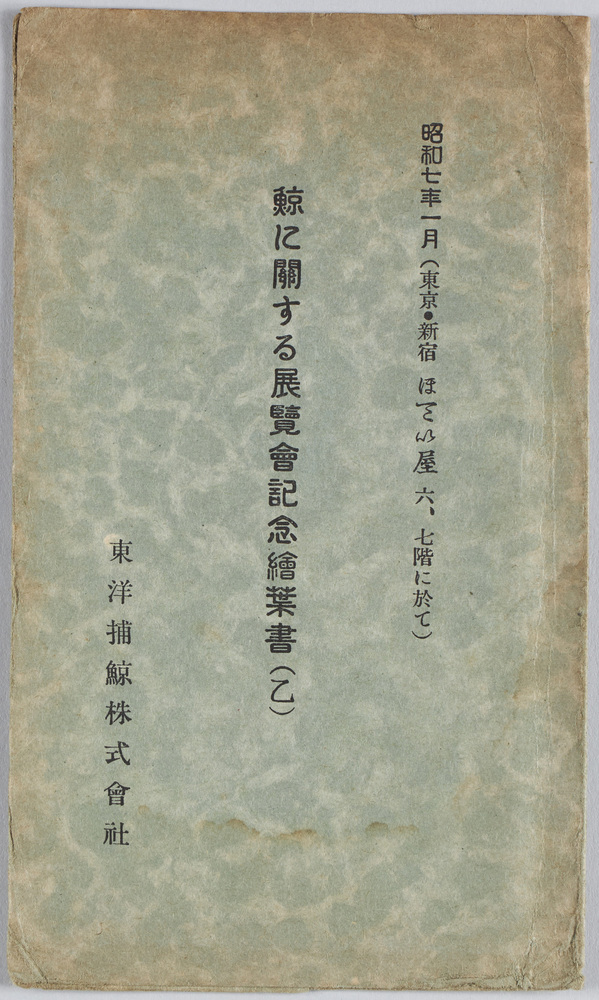 昭和七年一月（東京・新宿 ほてい屋 六、七階に於て）
鯨に關する展覽會記念繪葉書（乙）
東洋捕鯨株式會社